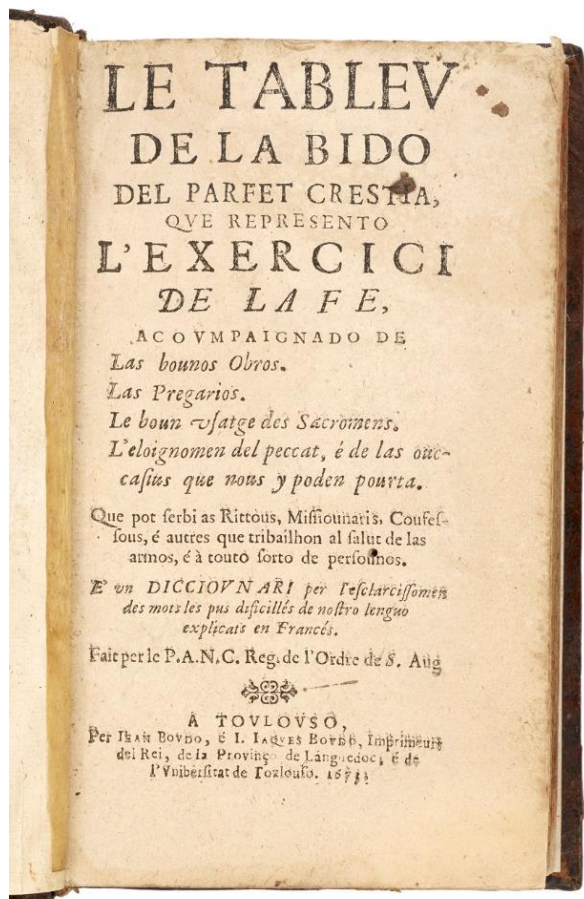 LE TABLEV
DE LA BIDO
DEL PARFET CRESTIA,
QVE REPRESENTO
L'EXERCICI
DE LA FE,
ACOVMPAIGNADO DE
Las bounos Obros.
Las Pregarios.
Le boun vsatge des Sacromens.
L'eloignomen del peccat, é de las ouc-
casius que nous y poden pourta.
Que pot serbi as Rittous, Missiounaris, Coufes-
sous, é autres que tribailhon al salut de las
armos, é à touto sorto de persounos.
E vn DICCIOVNARI per l'esclarcissomen
des mots les pus dificillés de nostro lenguo
explicats en Francés.
Fait per le P.A.N.C. Reg. de l'Ordre de S. Aug
A TOVLOVSO,
Per IEAN BOVDO, é I. IAQVES BOVDO, Imprimeurs
del Rei, de la Provinço de Languedoc, é de
l'Vnibersitat de Toulouso.